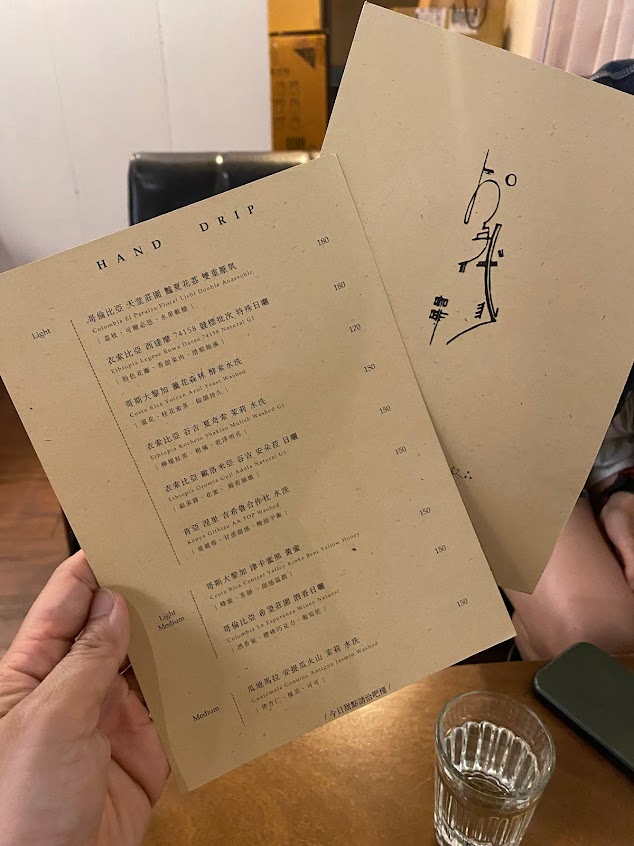 HAND DRIP
Light
哥倫比亞 天堂莊園 豔夏花荔 雙重厭氧 180
Colombia El Paraiso Floral Lichi Double Anaerobic
[ 荔枝、可爾必思、水果軟糖 ]
衣索比亞 西達摩 74158 競標批次 特殊日曬 180
Ethiopia Logese Kuwa Dasso 74158 Natural G1
哥斯大黎加 薰花森林 酵素水洗 120
Costa Rica Vulcan Azul Yeast Washed
衣索比亞 谷吉 夏奇索 茉莉 水洗 150
Ethiopia Kochere Shakiso Mulish Washed G1
[ 檸檬紅茶、柑橘、乾淨明亮 ]
衣索比亞 歐洛米亞 谷吉 安朵菈 日曬 150
Ethiopia Oromia Guji Adola Natural G1
肯亞 涅里 吉希魯合作社 水洗 150
Kenya Githiru AA TOP Washed
Light Medium
哥斯大黎加 津卡蜜餡 黃蜜 150
Costa Rica Central Valley Kinka Beni Yellow Honey
哥倫比亞 希望莊園 酒香日曬 150
Colombia La Esperanza Winey Natural
Medium
瓜地馬拉 安提瓜火山 茉莉 水洗 150
Guatemala Genuine Antigua Jasmin Washed
[ 烤杏仁、榛果、可可 ]
/ 今日甜點請洽吧檯 /